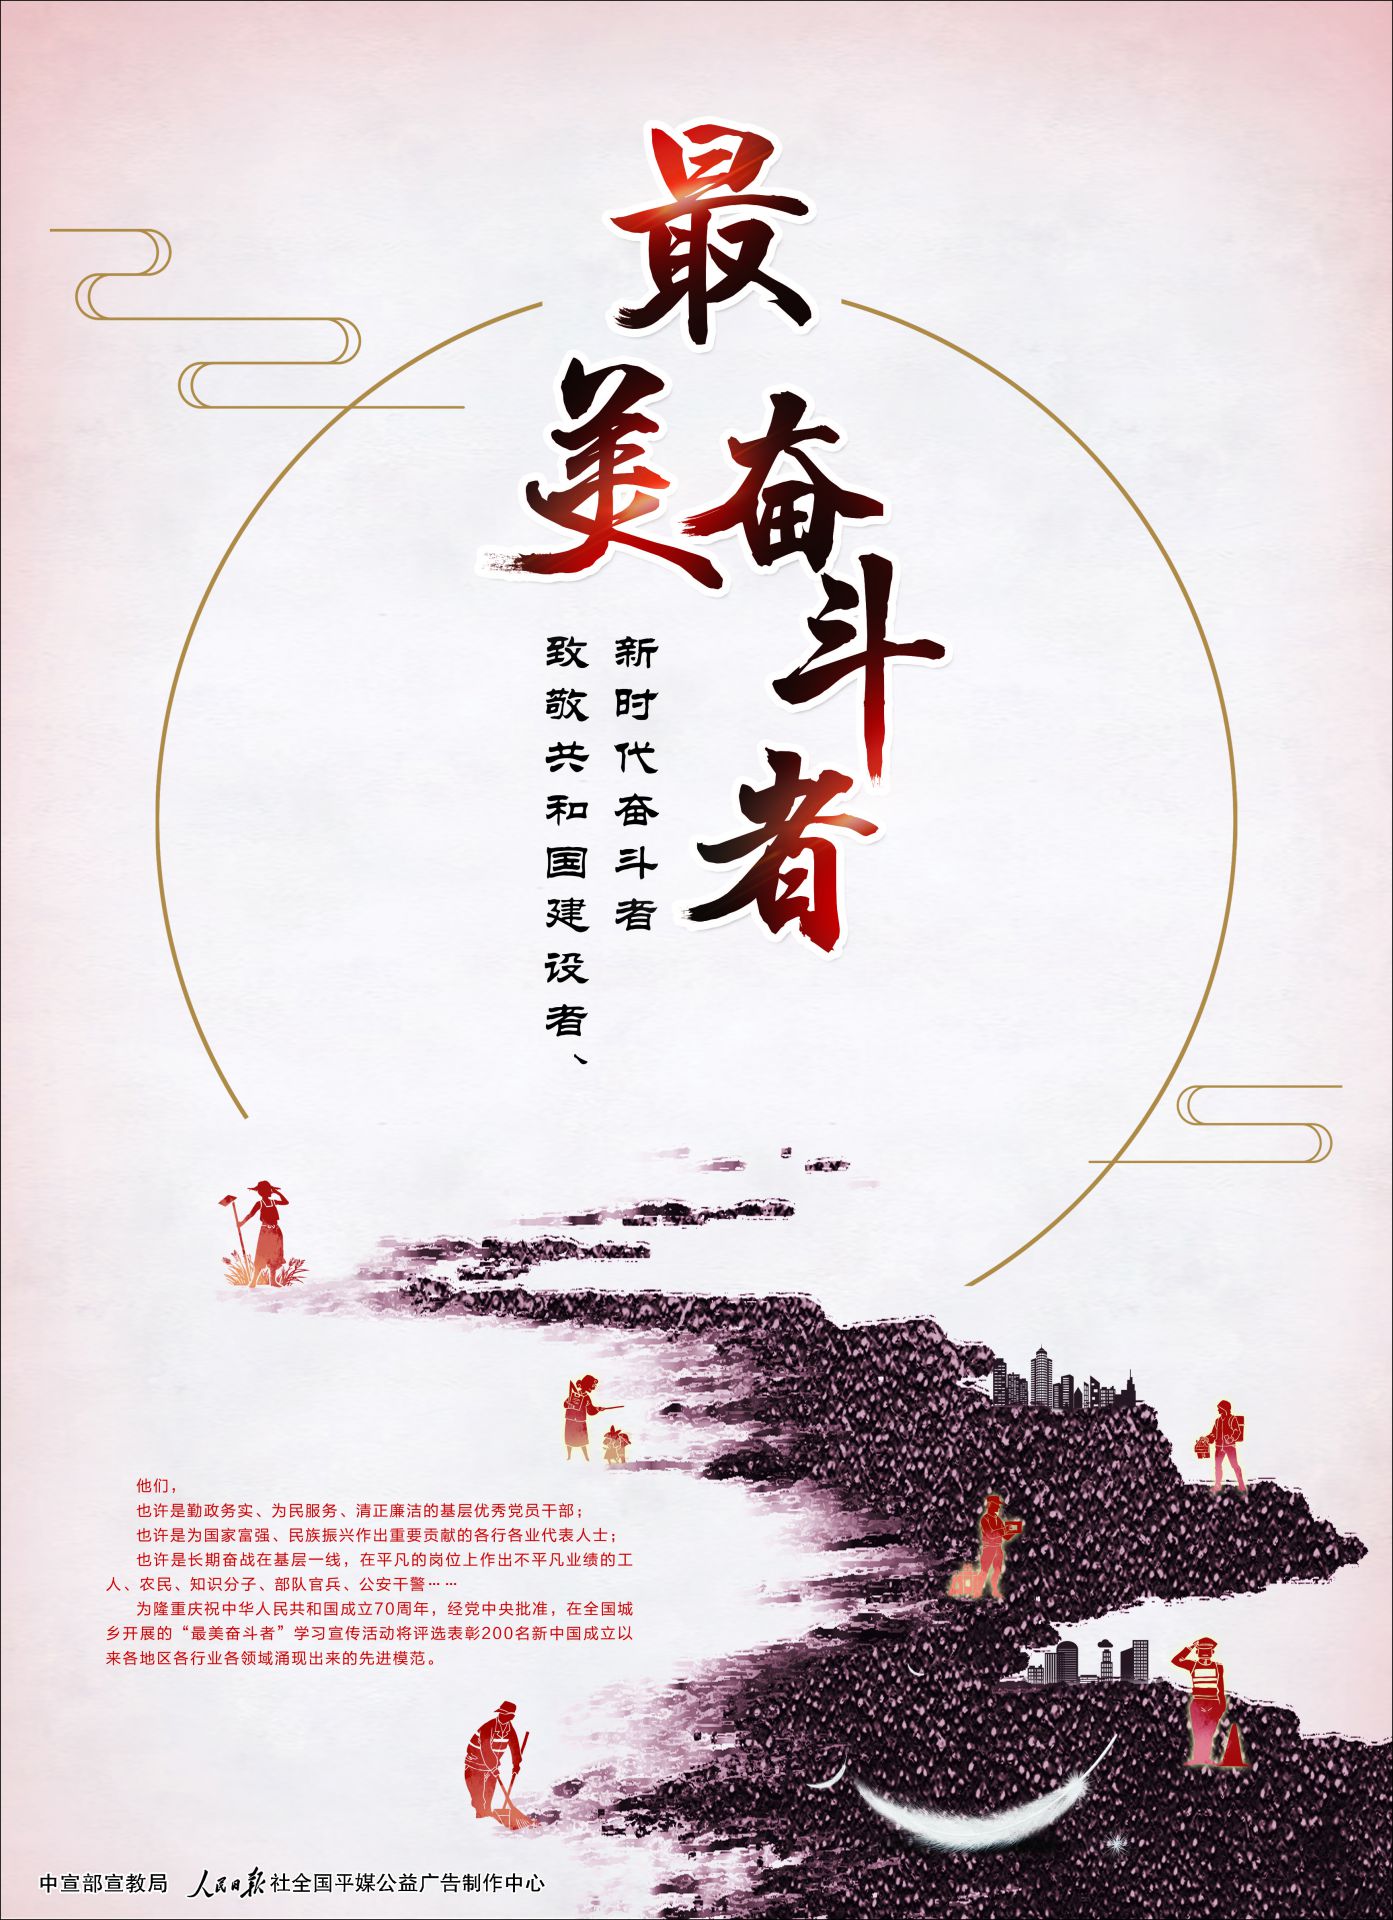 最美奋斗者
致敬共和国建设者、
新时代奋斗者
他们，
也许是勤政务实、为民服务、清正廉洁的基层优秀党员干部；
也许是为国家富强、民族振兴作出重要贡献的各行各业代表人士；
也许是长期奋战在基层一线，在平凡的岗位上作出不平凡业绩的工
人、农民、知识分子、部队官兵、公安干警……
为隆重庆祝中华人民共和国成立70周年，经党中央批准，在全国城
乡开展的“最美奋斗者”学习宣传活动将评选表彰200名新中国成立以
来各地区各行业各领域涌现出来的先进模范。
中宣部宣教局 人民日报社全国平媒公益广告制作中心